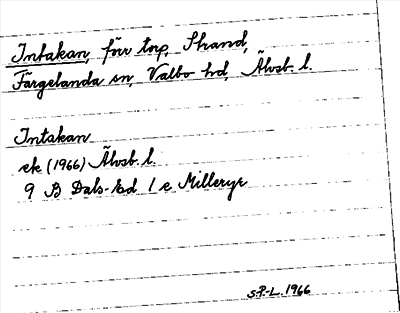 Intakan, förr torp, Strand,
Färgelanda sn, Valbo hd, Älvsb. l.
Intakan
ek (1966) Älvsb. l.
9 B Dals-Ed 1 e Milleryr
S.P-L. 1966